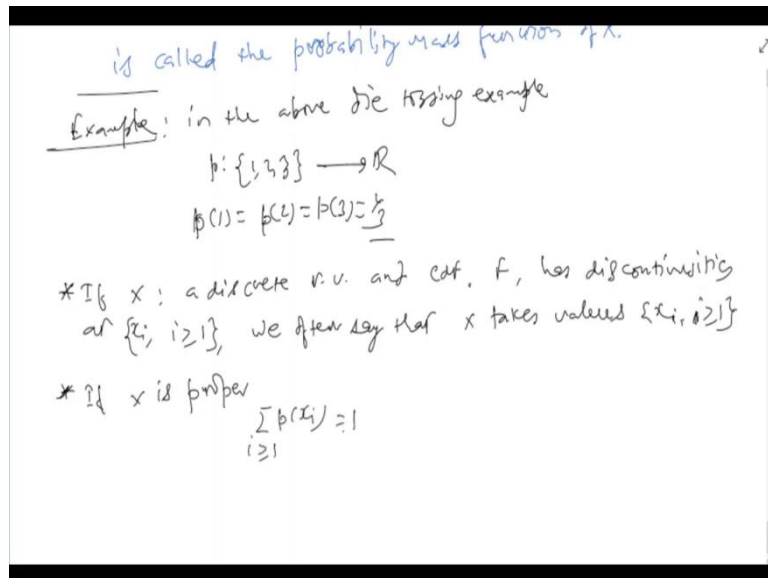 is called the probability mass function of X.
Example: in the above die tossing example
p: {1,2,3} → R
p(1) = p(2) = p(3) = 1/3
* If X: a discrete r.v. and cdf. F, has discontinuities
at {xi, i≥1}, we often say that X takes values {xi, i≥1}
* If X is proper
Σ p(xi) = 1
i≥1